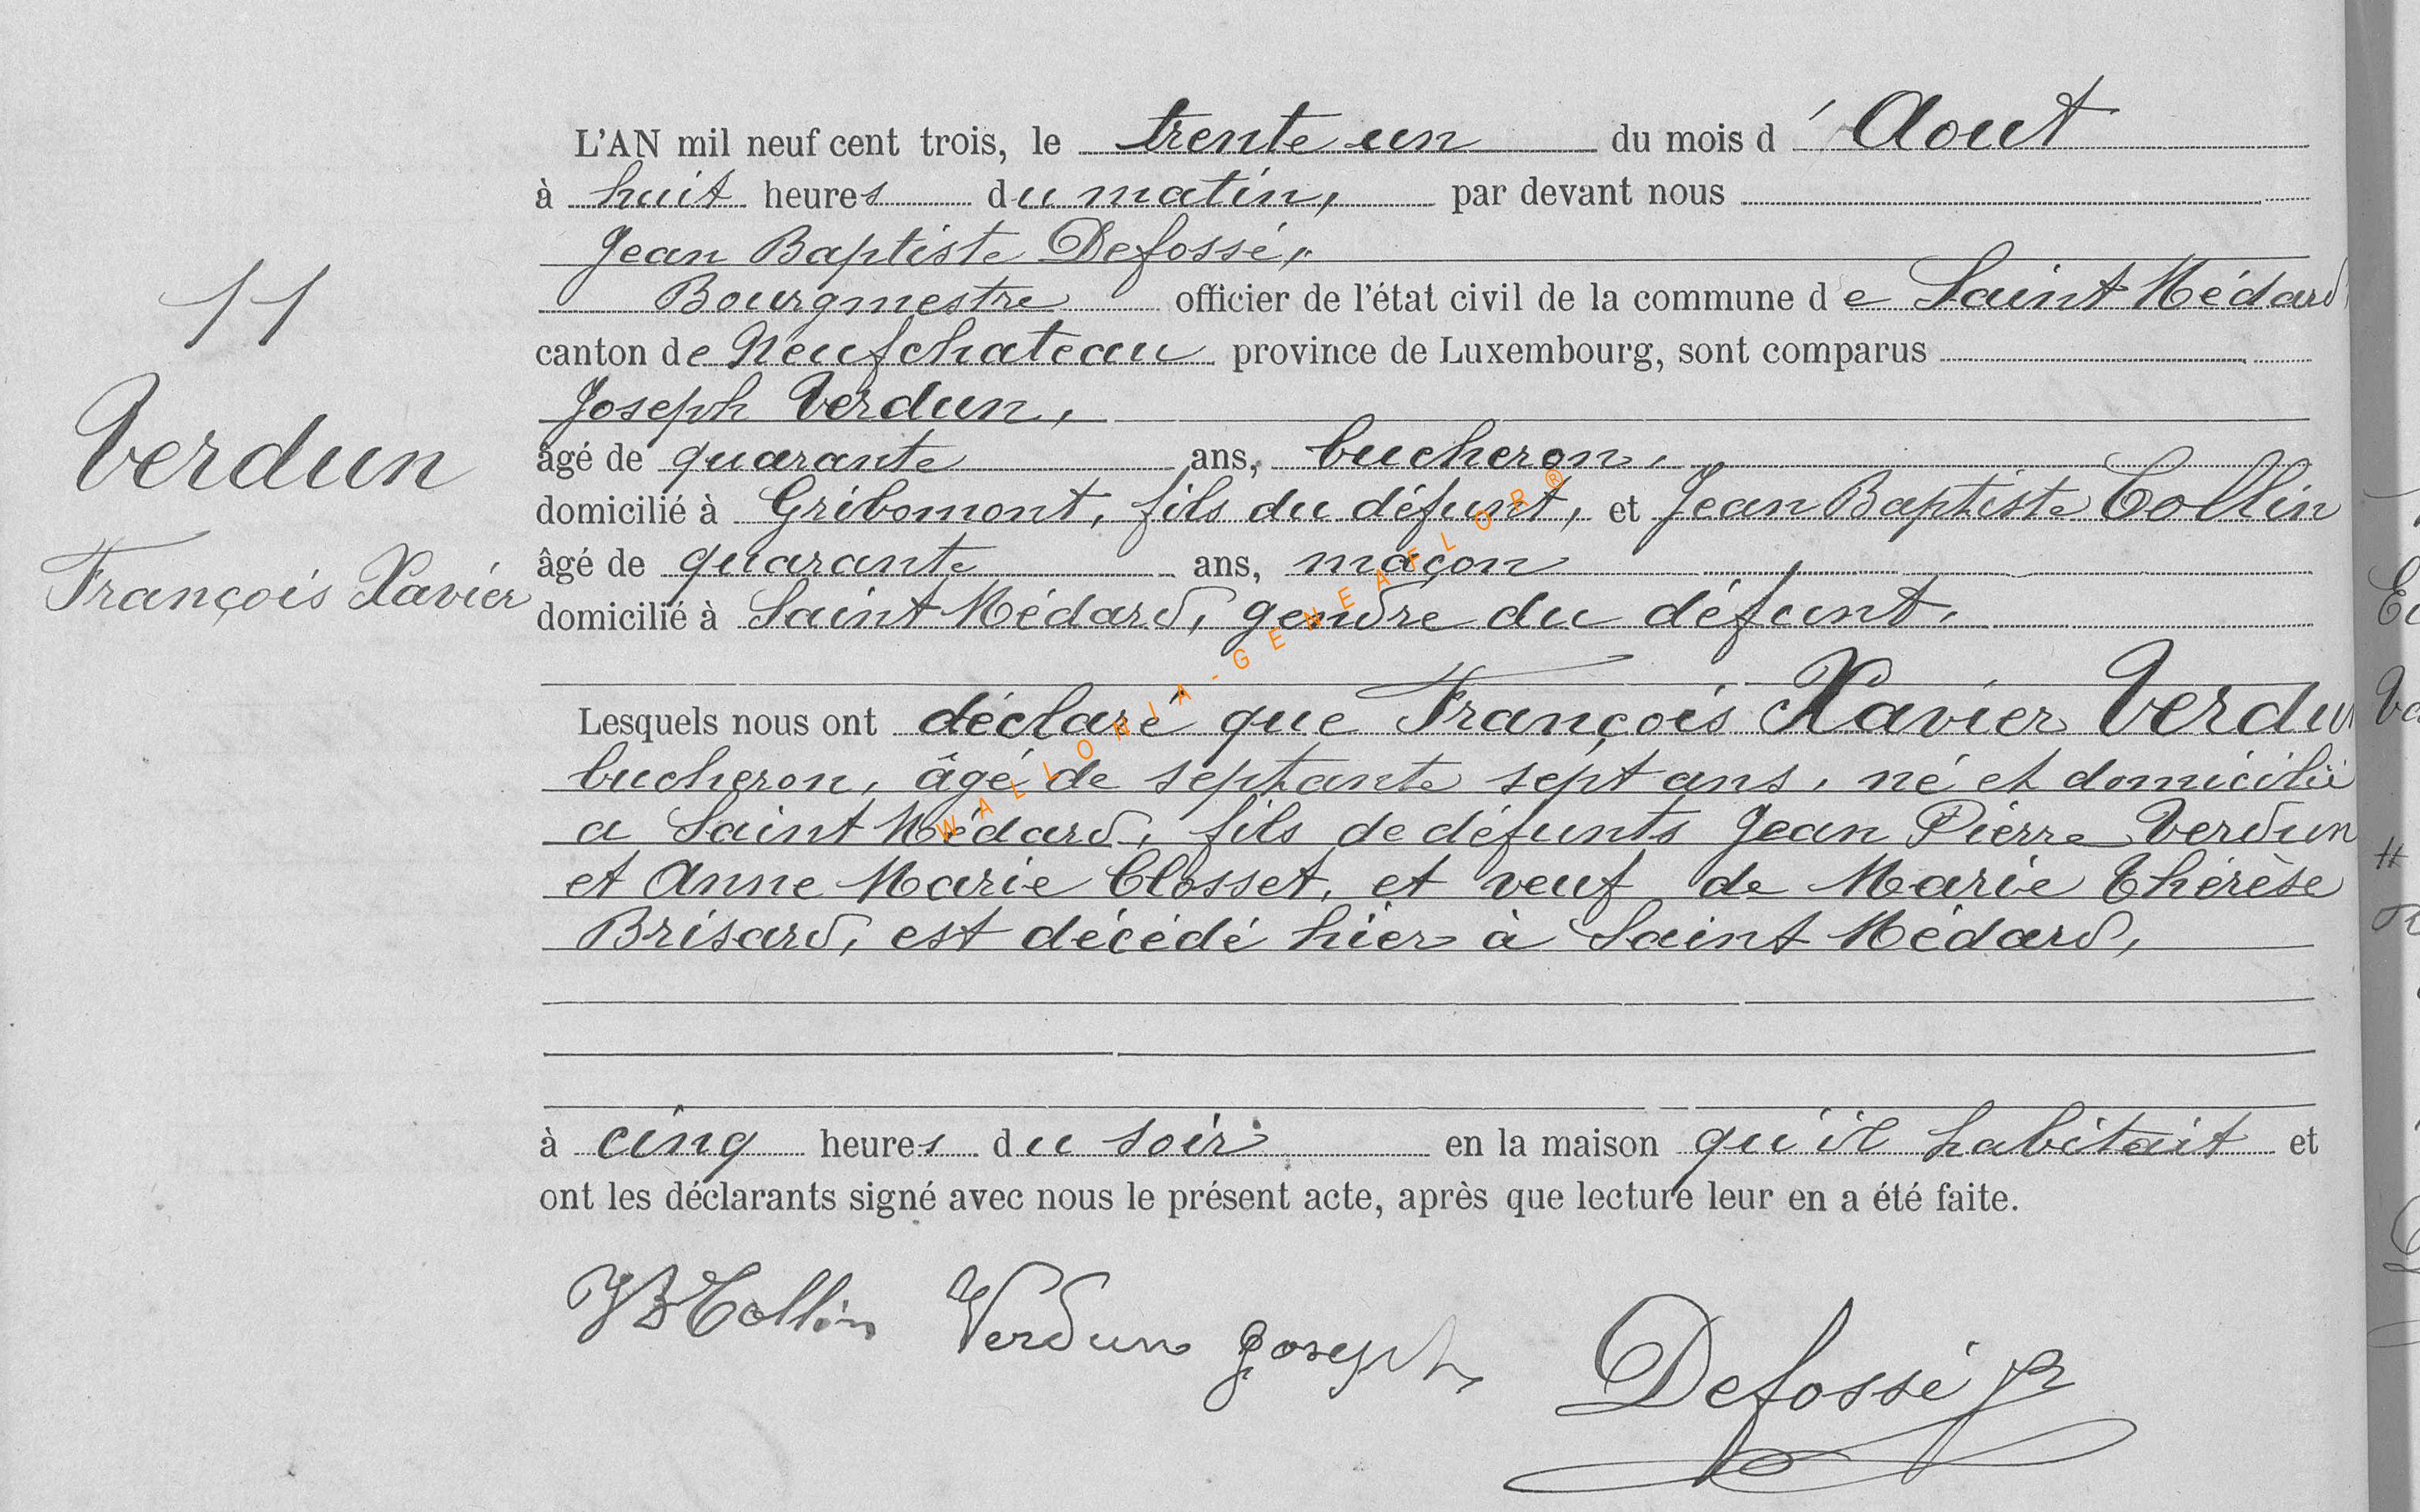 L'AN mil neuf cent trois, le trente un du mois d'Aout
à huit heures du matin, par devant nous
Jean Baptiste Defossé,
Bourgmestre officier de l'état civil de la commune de Saint Médard
11
canton de Neufchateau province de Luxembourg, sont comparus
Joseph Verdun,
Verdun
âgé de quarante ans, bucheron,
domicilié à Gribomont, fils du défunt, et Jean Baptiste Collin
âgé de quarante ans, maçon
François Xavier
domicilié à Saint Médard, gendre du défunt.
Lesquels nous ont déclaré que François Xavier Verdun
bucheron, âgé de septante sept ans, né et domicilié
a Saint Médard, fils de défunts Jean Pierre Verdun
et Anne Marie Closset, et veuf de Marie Thérèse
Brisard, est décédé hier à Saint Médard,
à cinq heures du soir en la maison qu'il habitait et
ont les déclarants signé avec nous le présent acte, après que lecture leur en a été faite.
JBCollin Verdun Joseph Defossé JB
WALLONIA-GENEAFLOR®